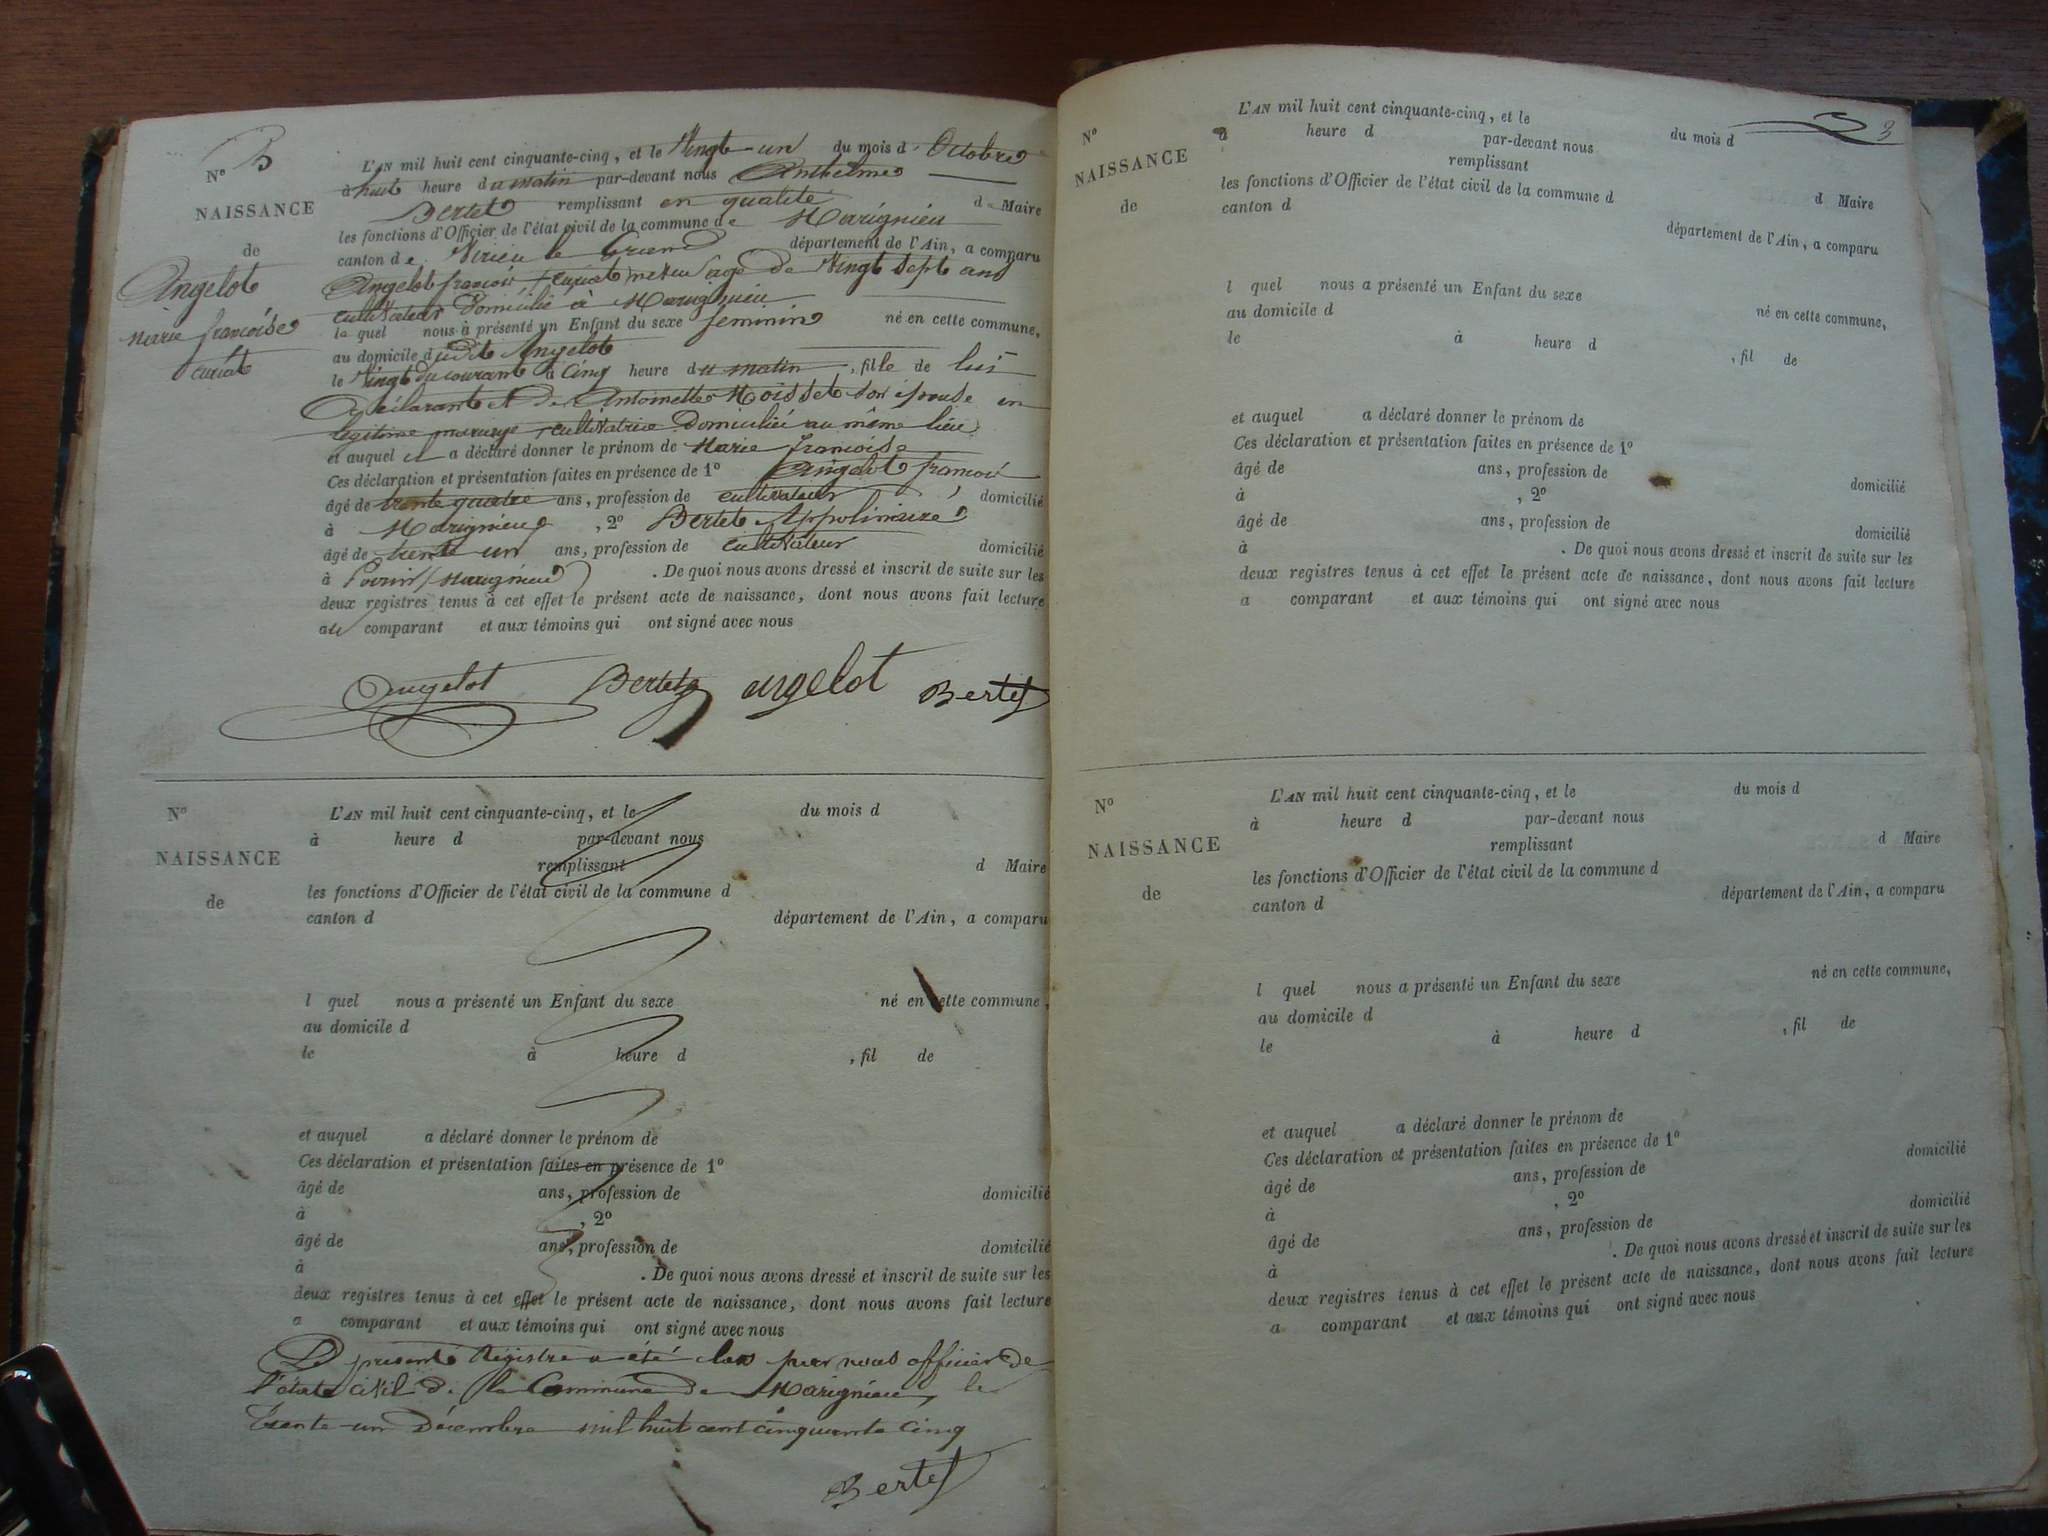 N° 5
NAISSANCE
de
Angelot
marie francoise
curiat
L'AN mil huit cent cinquante-cinq, et le Vingt-un du mois d'Octobre
à huit heure du matin par-devant nous Anthelme
Bertet remplissant en qualité d Maire
les fonctions d'Officier de l'état civil de la commune de Marignieu
canton de Virieu le Grand département de l'Ain, a comparu
Angelot francois, curiat, neveu agé de Vingt Sept ans
cultivateur Domicilié à Marignieu
le quel nous à présenté un Enfant du sexe feminin né en cette commune,
au domicile dudit Angelot
le Vingt du courant à Cinq heure du matin, fille de lui
Déclarant et de Antoinette Moisset son épouse en
légitime mariage, cultivatrice Domiciliée au même lieu
et auquel il a déclaré donner le prénom de Marie francoise
Ces déclaration et présentation faites en présence de 1° Angelot francois
âgé de trente quatre ans, profession de cultivateur domicilié
à Marignieu, 2° Bertet Appolinaire
âgé de trente un ans, profession de cultivateur domicilié
à (Marignieu). De quoi nous avons dressé et inscrit de suite sur les
deux registres tenus à cet effet le présent acte de naissance, dont nous avons fait lecture
au comparant et aux témoins qui ont signé avec nous
Angelot Bertet angelot Bertet
N°
NAISSANCE
de
L'AN mil huit cent cinquante-cinq, et le du mois d
à heure d par-devant nous
remplissant d Maire
les fonctions d'Officier de l'état civil de la commune d
canton d département de l'Ain, a comparu
l quel nous a présenté un Enfant du sexe né en cette commune,
au domicile d
le à heure d , fil de
et auquel a déclaré donner le prénom de
Ces déclaration et présentation faites en présence de 1°
âgé de ans, profession de domicilié
à , 2°
âgé de ans, profession de domicilié
à . De quoi nous avons dressé et inscrit de suite sur les
deux registres tenus à cet effet le présent acte de naissance, dont nous avons fait lecture
a comparant et aux témoins qui ont signé avec nous
Le present Registre a été clos par nous officier de
l'état civil de la Commune de Marignieu, le
trente-un Décembre mil huit cent cinquante cinq
Bertet
3
N°
NAISSANCE
de
L'AN mil huit cent cinquante-cinq, et le du mois d
à heure d par-devant nous
remplissant d Maire
les fonctions d'Officier de l'état civil de la commune d
canton d département de l'Ain, a comparu
l quel nous a présenté un Enfant du sexe né en cette commune,
au domicile d
le à heure d , fil de
et auquel a déclaré donner le prénom de
Ces déclaration et présentation faites en présence de 1°
âgé de ans, profession de domicilié
à , 2°
âgé de ans, profession de domicilié
à . De quoi nous avons dressé et inscrit de suite sur les
deux registres tenus à cet effet le présent acte de naissance, dont nous avons fait lecture
a comparant et aux témoins qui ont signé avec nous
N°
NAISSANCE
de
L'AN mil huit cent cinquante-cinq, et le du mois d
à heure d par-devant nous
remplissant d Maire
les fonctions d'Officier de l'état civil de la commune d
canton d département de l'Ain, a comparu
l quel nous a présenté un Enfant du sexe né en cette commune,
au domicile d
le à heure d , fil de
et auquel a déclaré donner le prénom de
Ces déclaration et présentation faites en présence de 1°
âgé de ans, profession de domicilié
à , 2°
âgé de ans, profession de domicilié
à . De quoi nous avons dressé et inscrit de suite sur les
deux registres tenus à cet effet le présent acte de naissance, dont nous avons fait lecture
a comparant et aux témoins qui ont signé avec nous